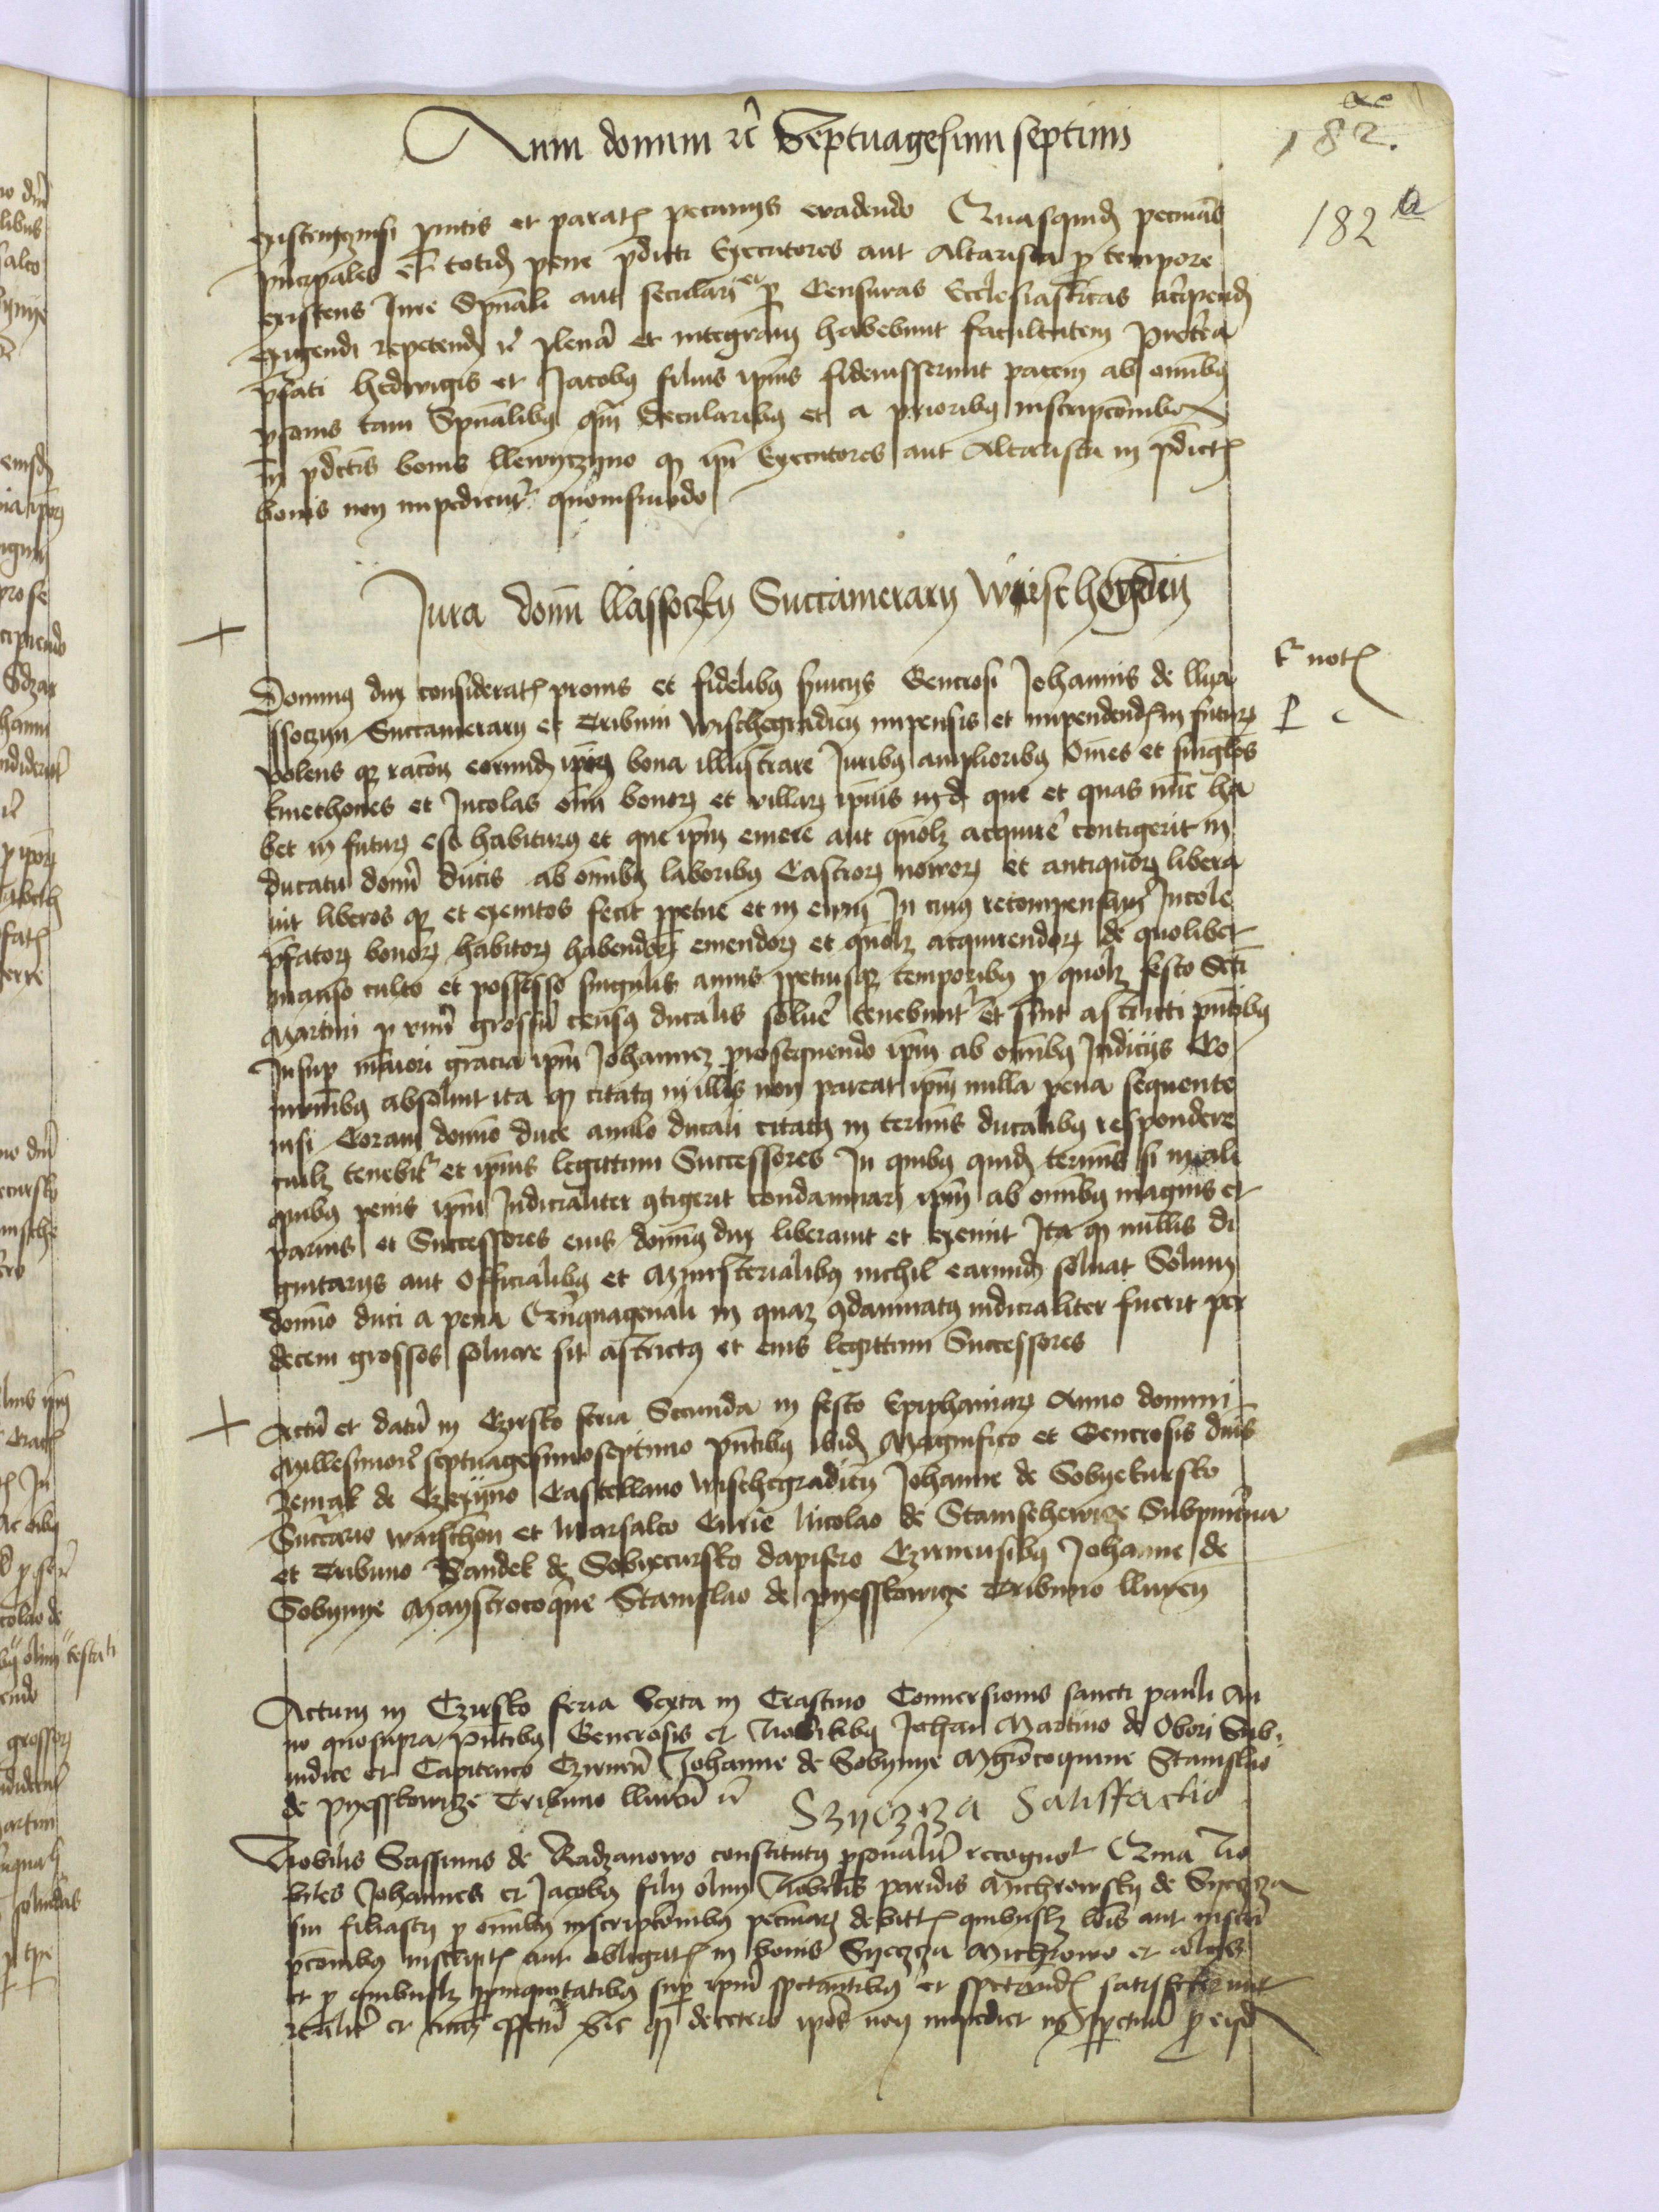 Anno domini etc Septuagesimo septimo
182.
182 a
pecuniis evadendo Quasquidem pecunias
principales et totidem pene predicti Executores aut Altarista pro tempore
existens Jure Spirituali aut seculari et per Censuras Ecclesiasticas
exigendi repetendi etc plenam et integram habebunt facultatem Preterea
prefati hedwigis et Jacobus filius ipsius fideiusserunt pacem ab omnibus
personis tam Spiritualibus quam Secularibus et a prioribus inscripcionibus
In predictis bonis llewyczyno quod ipsi Executores aut Altarista in predictis
bonis non impedientur quomismodo
Jura domini llassoczky Succamerarii Wischegradiensis
Dominus dux consideratis pronis et fidelibus serviciis Generosi Johannis de llya
ssoczyn Succamerarii et Tribuni Wischegradiensis impensis et impendendis in futurum
volens que racione eorundem ipsius bona illustrare Juribus amplioribus Omnes et singulos
kmethones et Incolas omnium bonorum et villarum ipsius que et quas nunc ha
bet in futurum est habiturus et que ipsum emere aut quomodolibet acquirere contigerit in
ducatu domini ducis ab omnibus laboribus Castrorum novorum et antiquorum libera
vit liberos que et exemptos fecit perpetue et in evum In cuius recompensam Incole
prefatorum bonorum habitorum habendorum emendorum et quomodolibet acquirendorum de quolibet
manso culto et possesso singulis annis perpetuisque temporibus pro quolibet festo Sancti
Martini per unum grossum census ducalis solvere tenebuntur et sint astricti presentibus
Insuper maiori gracia ipsum Johannem prosequendo ipsum ab omnibus Judiciis Co
munibus absolvit ita quod citatus in illis non pareat ipsum nulla pena sequente
nisi Coram domino duce anulo ducali citatus in terminis ducalibus respondere
cuilibet tenebitur et ipsius legittimi Successores In quibus quidem terminis si in ali
quibus penis ipsum Judicialiter contigerit condamnari ipsum ab omnibus magnis et
parvis et Successores eius dominus dux liberavit et exemit Ita quod nullis di
gnitariis aut Officialibus et Ministerialibus nichil earundem solvat Solum
domino duci a pena Quinquagenali in quam condamnatus iudicialiter fuerit per
decem grossos solvere sit astrictus et eius legittimi Successores
Actum et datum in Czirsko feria Secunda in festo Epiphaniarum Anno domini
Millesimo etc septuagesimoseptimo presentibus ibidem Magnifico et Generosis dominis
Zemak de Castellano Wischegradiensi Johanne de Sobyekursko
Succamerario Warschoviensi et Marsalco Curie Nicolao de Stanischewicze Subpincerna
et Tribuno Bandek de Sobyecursko dapifero Czirnensibus Johanne de
Sobynye Magistrocoquine Stanislao de pyesskowicze Tribuno
Actum in Czirsko feria Sexta in Crastino Conversionis sancti pauli An
no quosupra presentibus Generosis et Nobilibus Johanne Martino de Obori Sub
iudice et Capitaneo Czirnensi Johanne de Sobynye Magistrocoquine Stanislao
de pyesskowicze Tribuno etc
Szyczza Satisfactio
Nobilis Sassinus de Radzanowo constitutus personaliter recognovit Quia No
biles Johannes et Jacobus filii olim Nobilis paridis Michrowsky de Syczza
sui filiastri pro omnibus inscripcionibus pecuniarum debitis quibuslibet literis aut inscri
pcionibus inscriptis aut obligatis in bonis Syczza Michrowo et aliis
et pro quibuslibet propinquitatibus super ipsum spectantibus et spectandis satisfecerunt
realiter et cum effectu Sic quod decetero ipsos non impediet in perpetuum pro eisdem